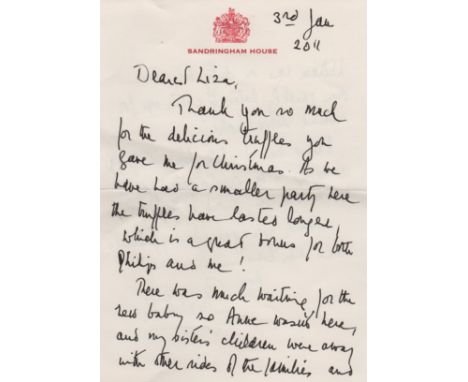 3rd Jan
2011
SANDRINGHAM HOUSE
Dearest Liza,
Thank you so much
for the delicious truffles you
gave me for Christmas. As we
have had a smaller party here
the truffles have lasted longer,
which is a great bonus for both
Philip and me!
There was much waiting for the
new baby so Anne wasn't here,
and my sister's children were away
with other sides of the families and